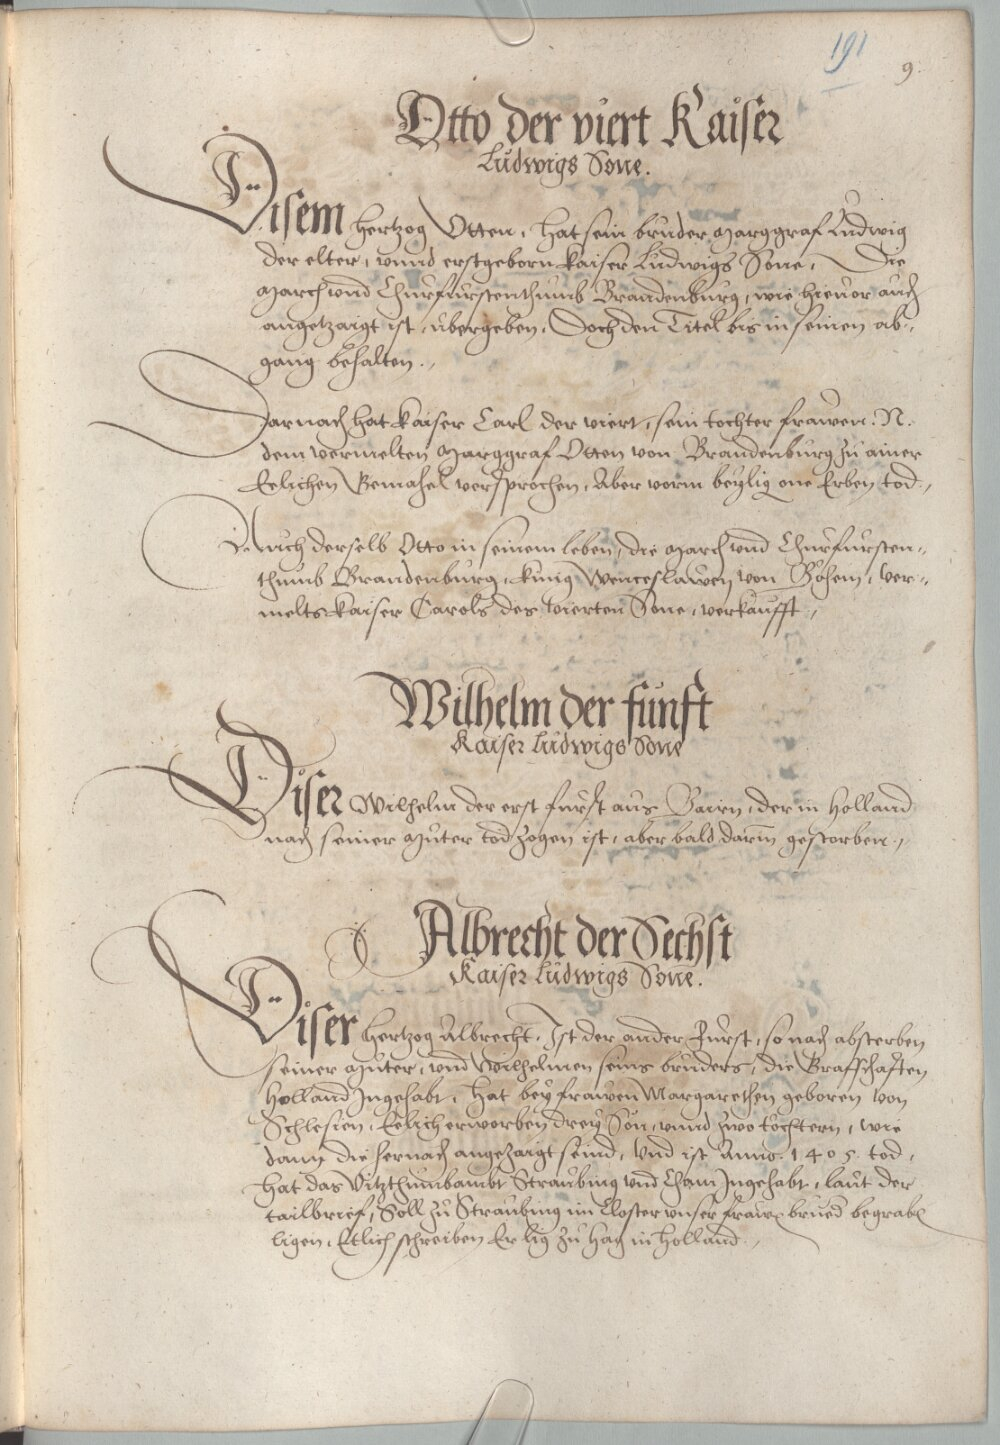 191
9.
Otto der viert Kaiser
Ludwigs Sone.
Disem hertzog Otten, hat sein brůder Marggraf Ludwig
der elter, vnnd erstgeborn Kaiser Ludwigs Sone, Die
March vnd Churfurstenthumb Brandenburg, wie hieuor auch
angetzaigt ist, übergeben, Doch den Titel bis in seinen ab-
gang behalten.
Darnach hat Kaiser Carl der viert, sein tochter frawen. N.
dem vermelten Marggraf Otten von Brandenburg zu ainer
Eelichen Gemahel versprochen, Aber vorm beÿlig one Erben tod.
Auch derselb Otto in seinem leben, die March vnd Churfursten-
thumb Brandenburg, kunig Wenceslawen von Behem, ver-
melts kaiser Carols des vierten Sone, verkaufft.
Wilhelm der funfft
Kaiser Ludwigs Sone
Diser Wilhelm der erst furst aus Bairn, der in Holland
nach seiner Muter tod zogen ist, aber bald darin gestorben.
Albrecht der Sechst
Kaiser Ludwigs Sone.
Diser hertzog Albrecht, Ist der ander Furst, so nach absterben
seiner Muter, vnd Wilhelmen seins bruders, die Graffschafften
Holland Ingehabt, hat beÿ frawen Margarethen geboren von
Schlesien, Eelich erworben dreÿ Son, vnnd zwo tochtern, wie
dann die hernach angezaigt seind, Vnd ist Anno. 1405. tod,
hat das Vitzthumbambt Straubing vnd Cham Ingehabt, laut der
tailbrief, Soll zu Straubing im Closter vnser frawen brued begraben
ligen, Etlich schreiben Er lig zu Hag in Holland.